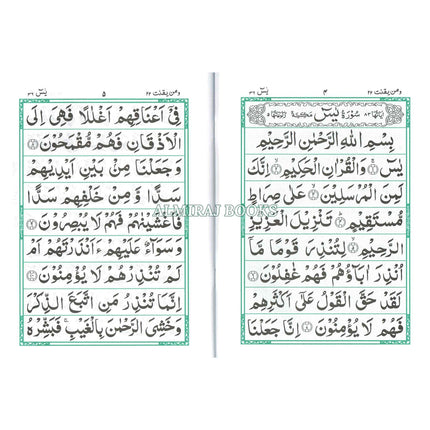 ومن يقنت ٢٢ ٤ يٰسٓ ٣٦
سُوْرَةُ يٰسٓ مَكِّيَّةٌ
بِسْمِ اللهِ الرَّحْمٰنِ الرَّحِيْمِ
يٰسٓ ﴿١﴾ وَالْقُرْاٰنِ الْحَكِيْمِ ﴿٢﴾ اِنَّكَ
لَمِنَ الْمُرْسَلِيْنَ ﴿٣﴾ عَلٰى صِرَاطٍ
مُّسْتَقِيْمٍ ﴿٤﴾ تَنْزِيْلَ الْعَزِيْزِ
الرَّحِيْمِ ﴿٥﴾ لِتُنْذِرَ قَوْمًا مَّآ
اُنْذِرَ اٰبَآؤُهُمْ فَهُمْ غٰفِلُوْنَ ﴿٦﴾
لَقَدْ حَقَّ الْقَوْلُ عَلٰٓى اَكْثَرِهِمْ
فَهُمْ لَا يُؤْمِنُوْنَ ﴿٧﴾ اِنَّا جَعَلْنَا
ومن يقنت ٢٢ ٥ يٰسٓ ٣٦
فِيْٓ اَعْنَاقِهِمْ اَغْلٰلًا فَهِيَ اِلَى
الْاَذْقَانِ فَهُمْ مُّقْمَحُوْنَ ﴿٨﴾
وَجَعَلْنَا مِنْۢ بَيْنِ اَيْدِيْهِمْ
سَدًّا وَّ مِنْ خَلْفِهِمْ سَدًّا
فَاَغْشَيْنٰهُمْ فَهُمْ لَا يُبْصِرُوْنَ ﴿٩﴾
وَسَوَآءٌ عَلَيْهِمْ ءَاَنْذَرْتَهُمْ اَمْ
لَمْ تُنْذِرْهُمْ لَا يُؤْمِنُوْنَ ﴿١٠﴾
اِنَّمَا تُنْذِرُ مَنِ اتَّبَعَ الذِّكْرَ
وَخَشِيَ الرَّحْمٰنَ بِالْغَيْبِ ۚ فَبَشِّرْهُ
ALMIRAJ BOOKS